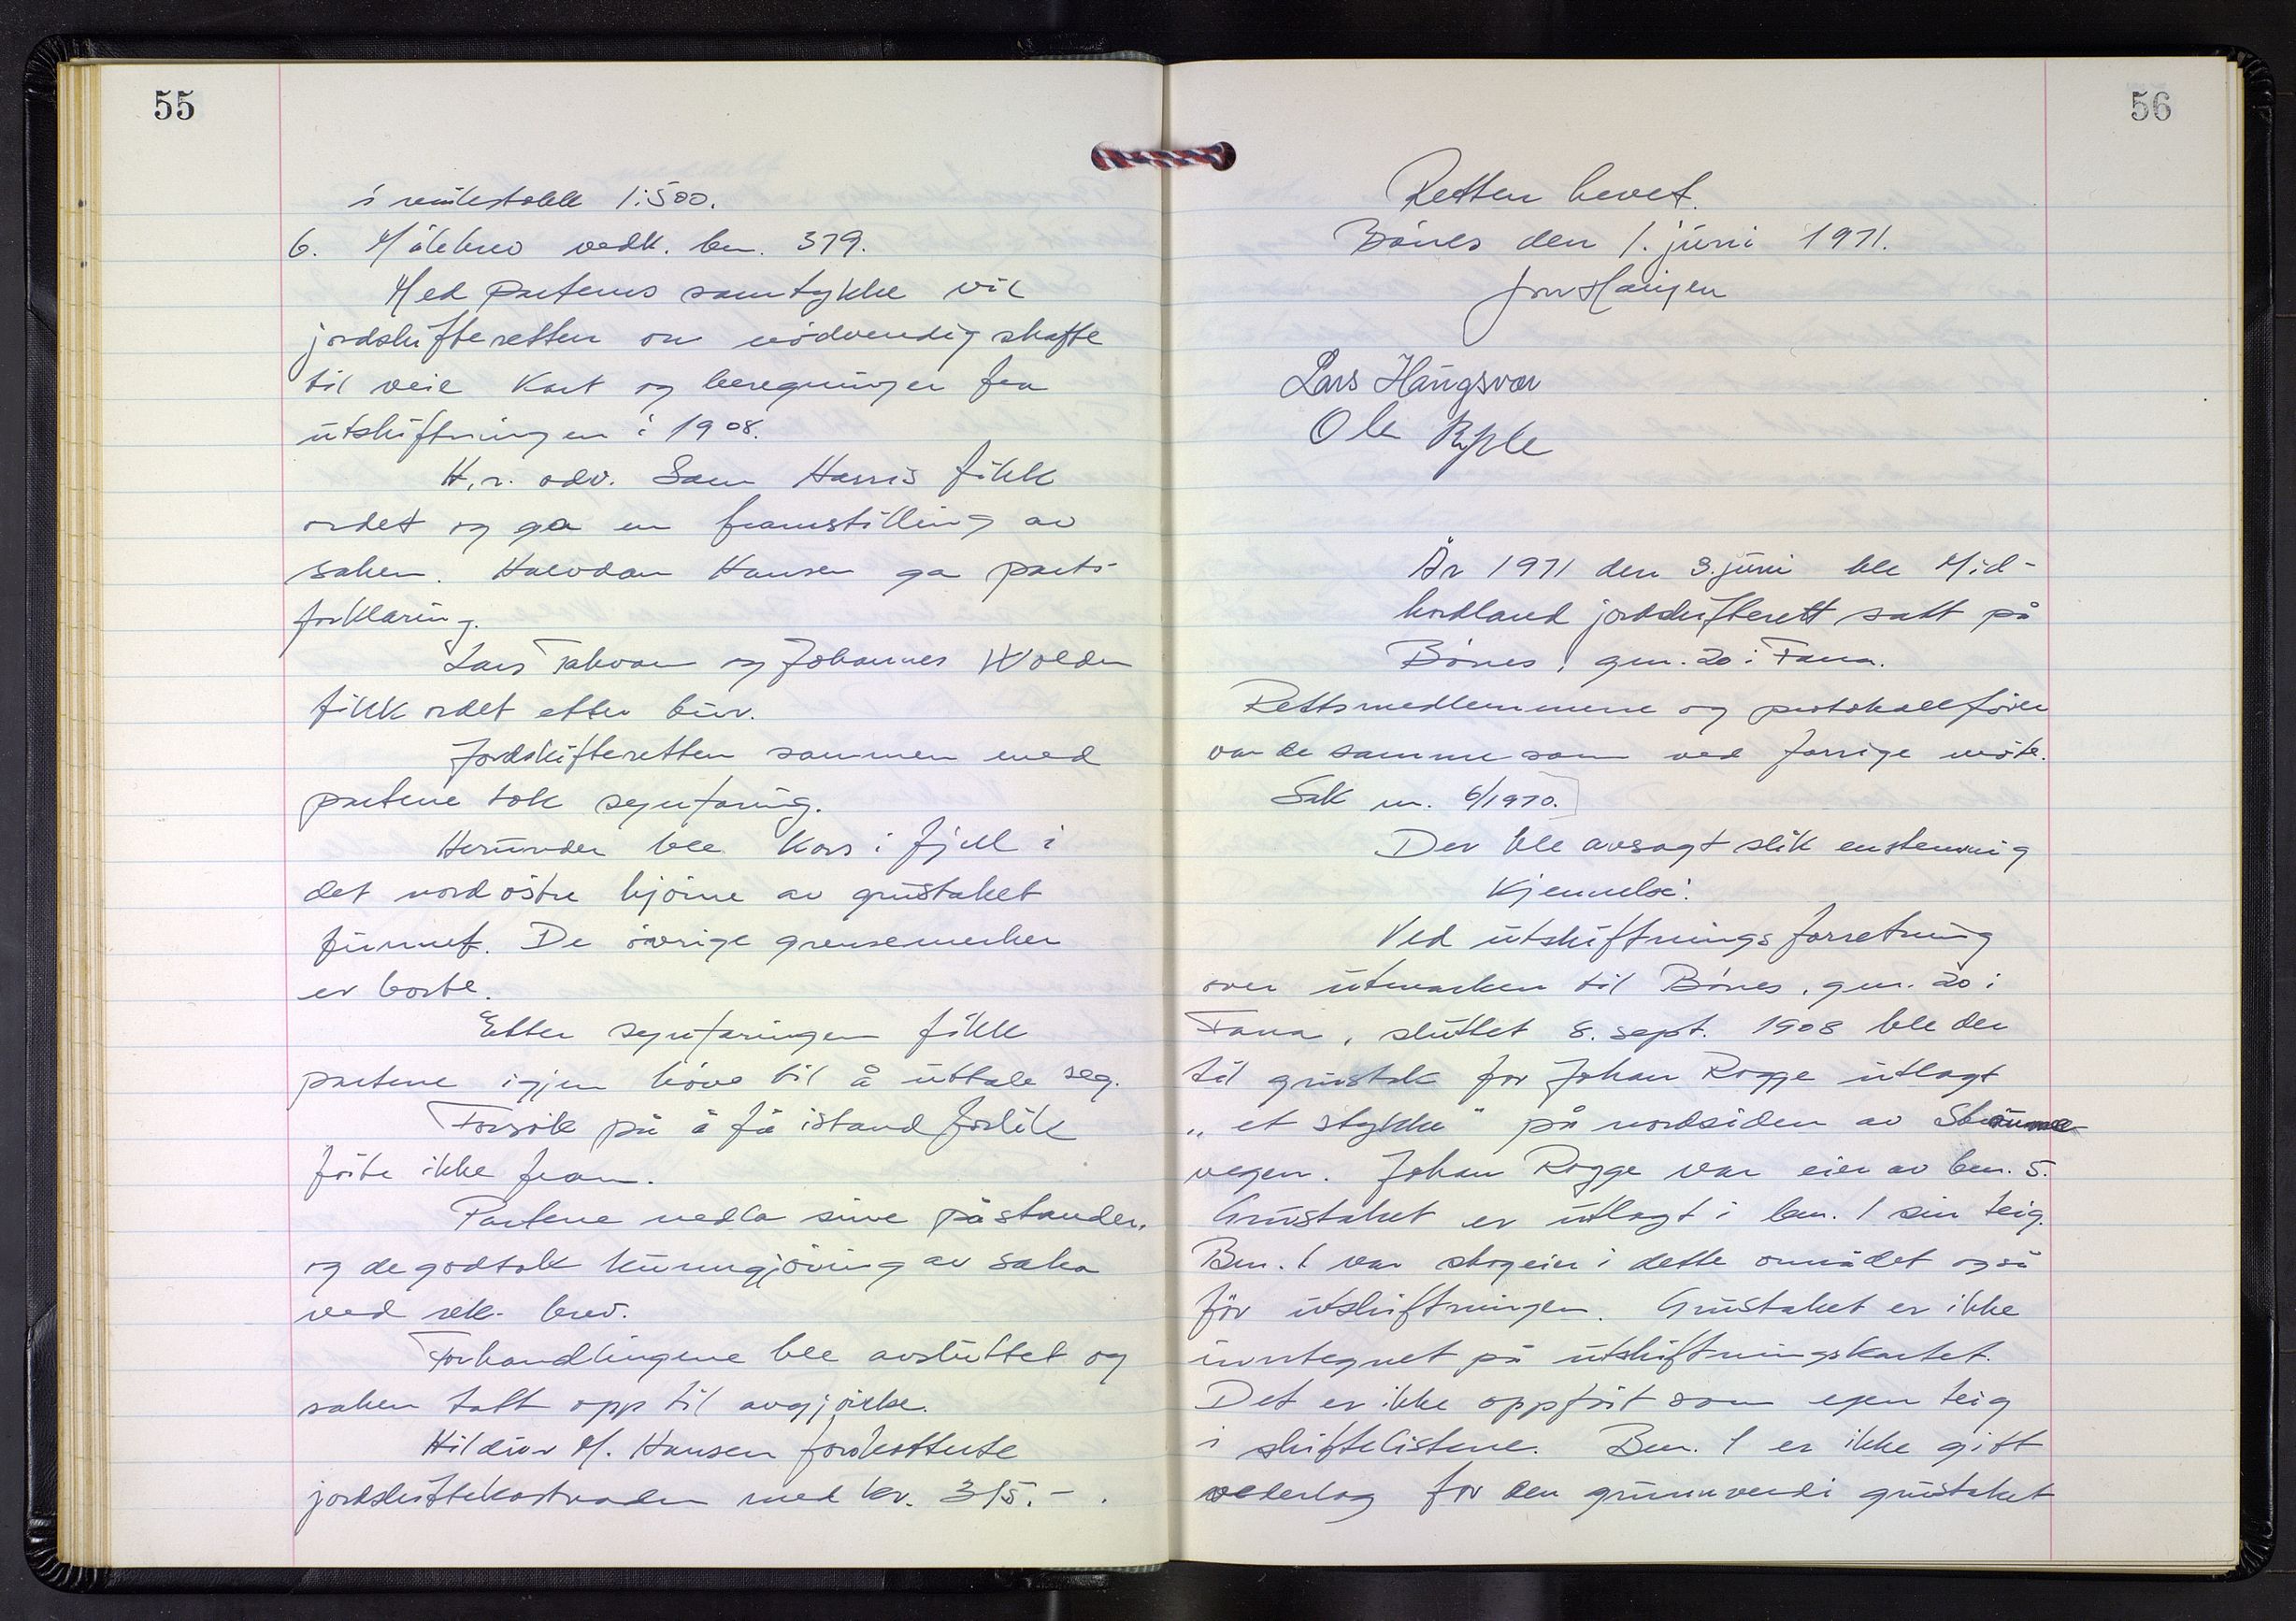 55
i målestokk 1:500.
6. Målebrev vedk. bnr. 379.
Med partenes samtykke vil
jordskifteretten om nödvendig skaffe
til veie kart og beregninger fra
utskiftningen i 1908.
H.r. adv. Sam Harris fikk
ordet og ga en framstilling av
saken. Halvdan Hansen ga parts-
forklaring.
Lars og Johannes Wolden
fikk ordet etter tur.
Jordskifteretten sammen med
partene tok synfaring.
Herunder ble kors i fjell i
det nordöstre hjörne av grustaket
funnet. De övrige grensemerker
er borte.
Etter synfaringen fikk
partene igjen höve til å uttale seg.
Forsök på å få istand forlik
förte ikke fram.
Partene nedla sine påstander,
og de godtok kunngjöring av saka
ved rek. brev.
Forhandlingene ble avsluttet og
saken tatt opp til avgjörelse.
Hildur M. Hansen forskotterte
jordskiftekostnaden med kr. 315.- .
56
Retten hevet.
Bönes den 1. juni 1971.
Jon Haugen
Lars Haugsvær
Ole
År 1971 den 3. juni ble Mid-
hordland jordskifterett satt på
Bönes, gnr. 20 i Fana.
Rettsmedlemmene og protokollförer
var de samme som ved forrige möte.
Sak nr. 6/1970.
Der ble avsagt slik enstemmig
kjennelse:
Ved utskiftningsforretning
over utmarken til Bönes, gnr. 20 i
Fana, sluttet 8. sept. 1908 ble der
til grustak for Johan Rogge utlagt
„et stykke" på nordsiden av Straume-
vegen. Johan Rogge var eier av bnr. 5.
Grustaket er utlagt i bnr. 1 sin teig.
Bnr. 1 var skogeier i dette området også
för utskiftningen. Grustaket er ikke
inntegnet på utskiftningskartet.
Det er ikke oppfört som egen teig
i skiftelistene. Bnr. 1 er ikke gitt
vederlag for den grunnverdi grustaket